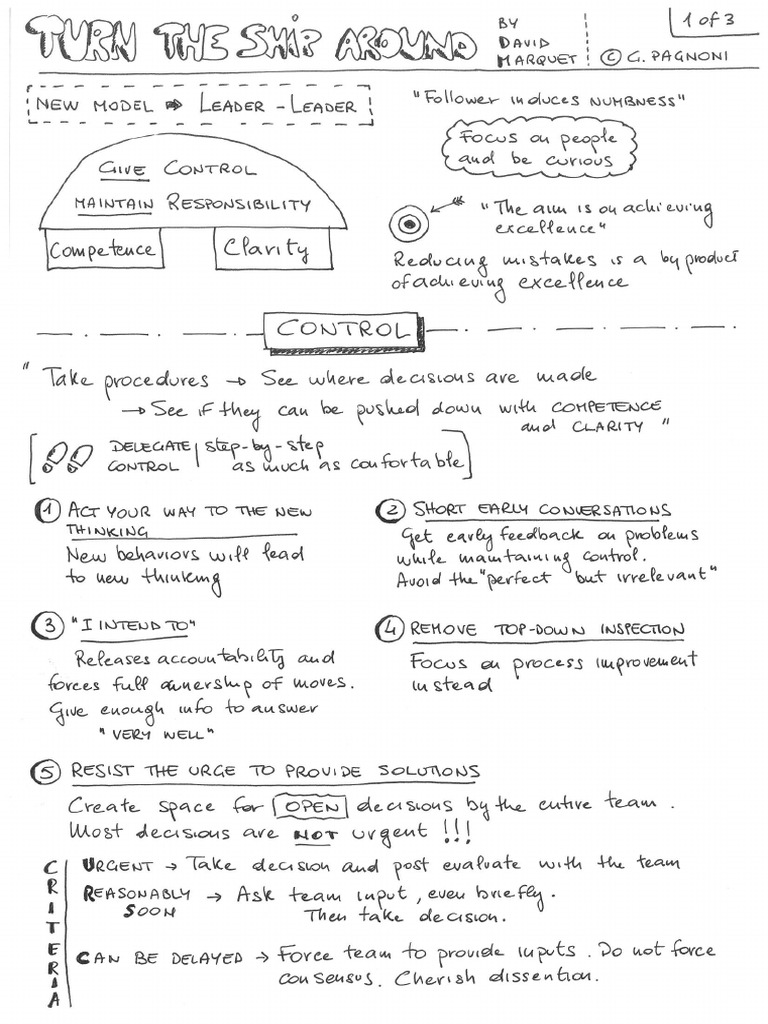 TURN THE SHIP AROUND
BY
DAVID
MARQUET
© G. PAGNONI
1 of 3
NEW MODEL ➔ LEADER - LEADER
"Follower induces NUMBNESS"
Focus on people
and be curious
GIVE CONTROL
MAINTAIN RESPONSIBILITY
Competence
Clarity
"The aim is on achieving
excellence"
Reducing mistakes is a by product
of achieving excellence
CONTROL
"Take procedures → See where decisions are made
→ See if they can be pushed down with COMPETENCE
and CLARITY"
DELEGATE
CONTROL
step-by-step
as much as confortable
1 ACT YOUR WAY TO THE NEW
THINKING
New behaviors will lead
to new thinking
2 SHORT EARLY CONVERSATIONS
Get early feedback on problems
while maintaining control.
Avoid the "perfect but irrelevant"
3 "I INTEND TO"
Releases accountability and
forces full ownership of moves.
Give enough info to answer
"VERY WELL"
4 REMOVE TOP-DOWN INSPECTION
Focus on process improvement
instead
5 RESIST THE URGE TO PROVIDE SOLUTIONS
Create space for OPEN decisions by the entire team.
Most decisions are NOT urgent !!!
CRITERIA
URGENT → Take decision and post evaluate with the team
REASONABLY → Ask team input, even briefly.
SOON Then take decision.
CAN BE DELAYED → Force team to provide inputs. Do not force
consensus. Cherish dissention.